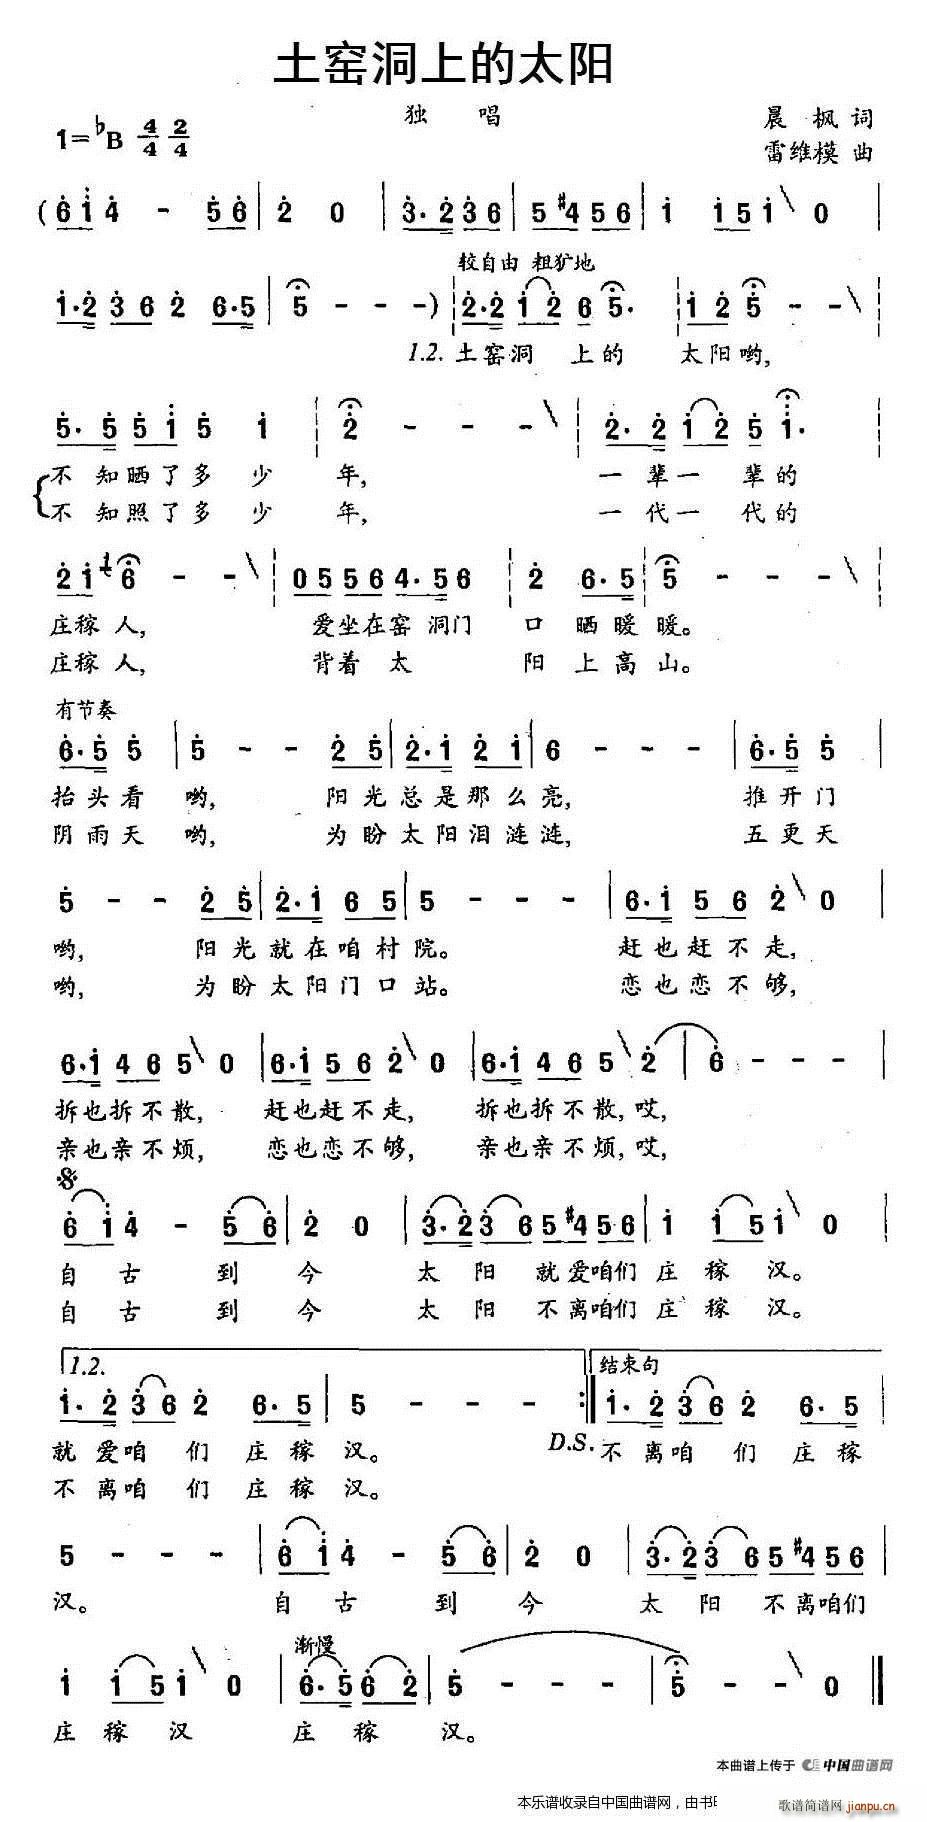 土窑洞上的太阳
独 唱
晨 枫 词
1=♭B 4/4 2/4
雷维模 曲
(6i4 - 56 | 2 0 | 3·236 | 5#456 | i i5i \ 0 |
较自由 粗犷地
1·2 36 2 6·5 | 5 - - - ) 2·2 12 6 5· 12 5 - - \
1.2. 土窑洞 上的 太阳哟,
5·5 5i 5 i 2 - - \ 2·2 12 5 i·
不知晒了多少年, 一辈一辈的
不知照了多少年, 一代一代的
2i 6 - - \ 0556 4·56 2 6·5 5 - - - \
庄稼人, 爱坐在窑洞门口晒暖暖。
庄稼人, 背着太阳上高山。
有节奏
6·5 5 | 5 - - 25 | 2·i 2i | 6 - - - | 6·5 5 |
抬头看哟, 阳光总是那么亮, 推开门
阴雨天哟, 为盼太阳泪涟涟, 五更天
5 - - 25 | 2·i 65 | 5 - - - | 6·i 56 2 \ 0 |
哟, 阳光就在咱村院。 赶也赶不走,
哟, 为盼太阳门口站。 恋也恋不够,
6·i 46 5 \ 0 | 6·i 56 2 \ 0 | 6·i 46 5 \ 2 | 6 - - -
拆也拆不散, 赶也赶不走, 拆也拆不散, 哎,
亲也亲不烦, 恋也恋不够, 亲也亲不烦, 哎,
6i4 - 56 | 2 0 | 3·236 5#456 | i i5i \ 0
自古到今太阳就爱咱们庄稼汉。
自古到今太阳不离咱们庄稼汉。
1.2. 结束句
i·2 36 2 6·5 | 5 - - - :| i·2 36 2 6·5 |
D.S.
就爱咱们庄稼汉。 不离咱们庄稼
不离咱们庄稼汉。
5 - - - | 6i4 - 56 | 2 0 | 3·236 5#456 |
汉。 自古到今太阳不离咱们
渐慢
i i5i \ 0 | 6·5 62 | 5 - - - | 5 - - \ 0 ‖
庄稼汉 庄稼汉。
本曲谱上传于 中国曲谱网
本乐谱收录自中国曲谱网，由书
歌谱简谱网 jianpu.cn